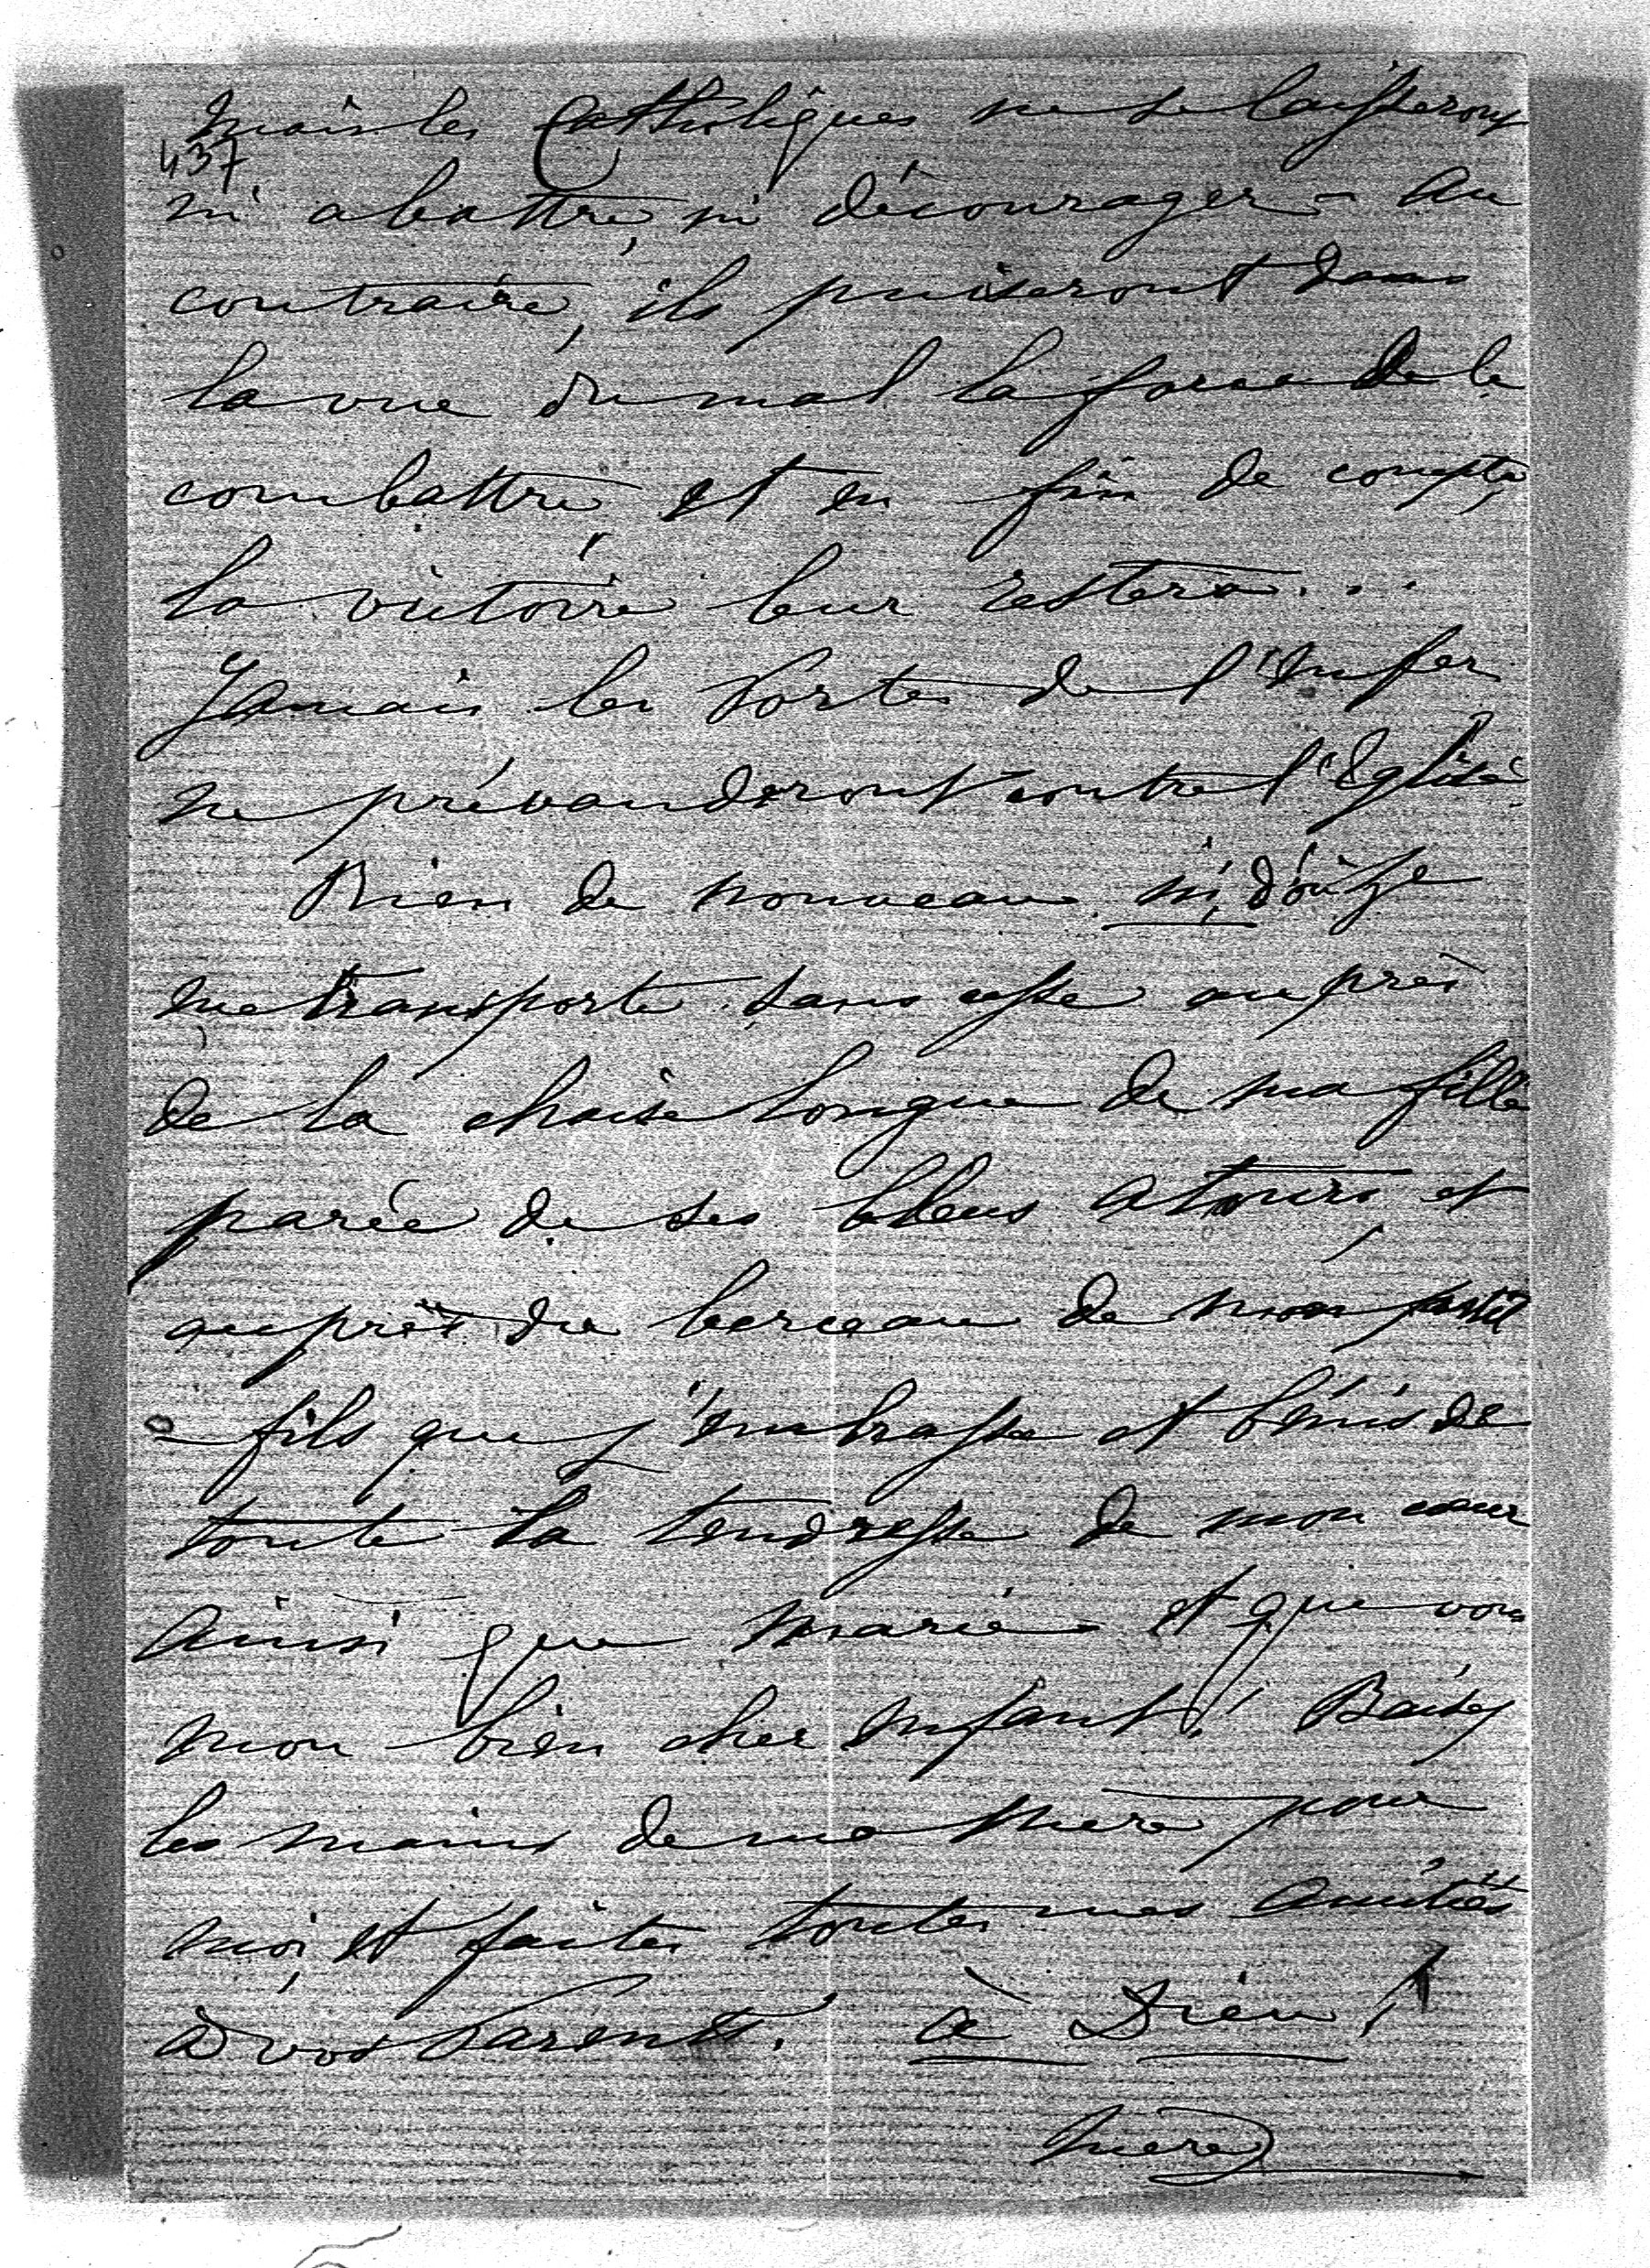 mais les Catholiques ne se laisseront
437
ni abattre, ni décourager - au
contraire, ils puiseront dans
la vue du mal la force de le
combattre, et en fin de compte,
la victoire leur restera...
Jamais les Portes de l'Enfer
ne prévauderont contre l'Eglise.
Rien de nouveau ici, d'où je
me transporte sans cesse auprès
de la chaise longue de ma fille
parée de ses bleus atours, et
auprès du berceau de mon petit
- fils que j'embrasse et bénis de
toute la tendresse de mon cœur
ainsi que Marie et que vous
mon bien cher enfant! Baisez
les mains de ma Mère pour
moi, et faites toutes mes amitiés
à vos Parents. à Dieu!